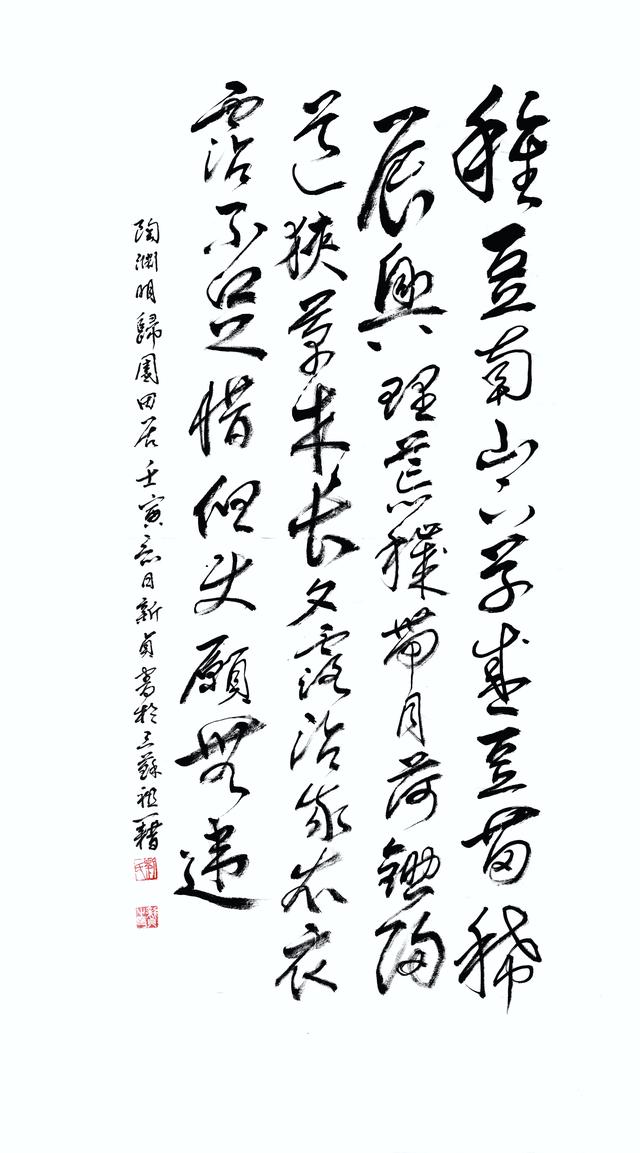 種豆南山下草盛豆苗稀
晨興理荒穢帶月荷鋤歸
道狹草木長夕露沾我衣衣
霑不足惜但使願無違
陶淵明歸園田居壬寅日新貞書於三蘇祖籍